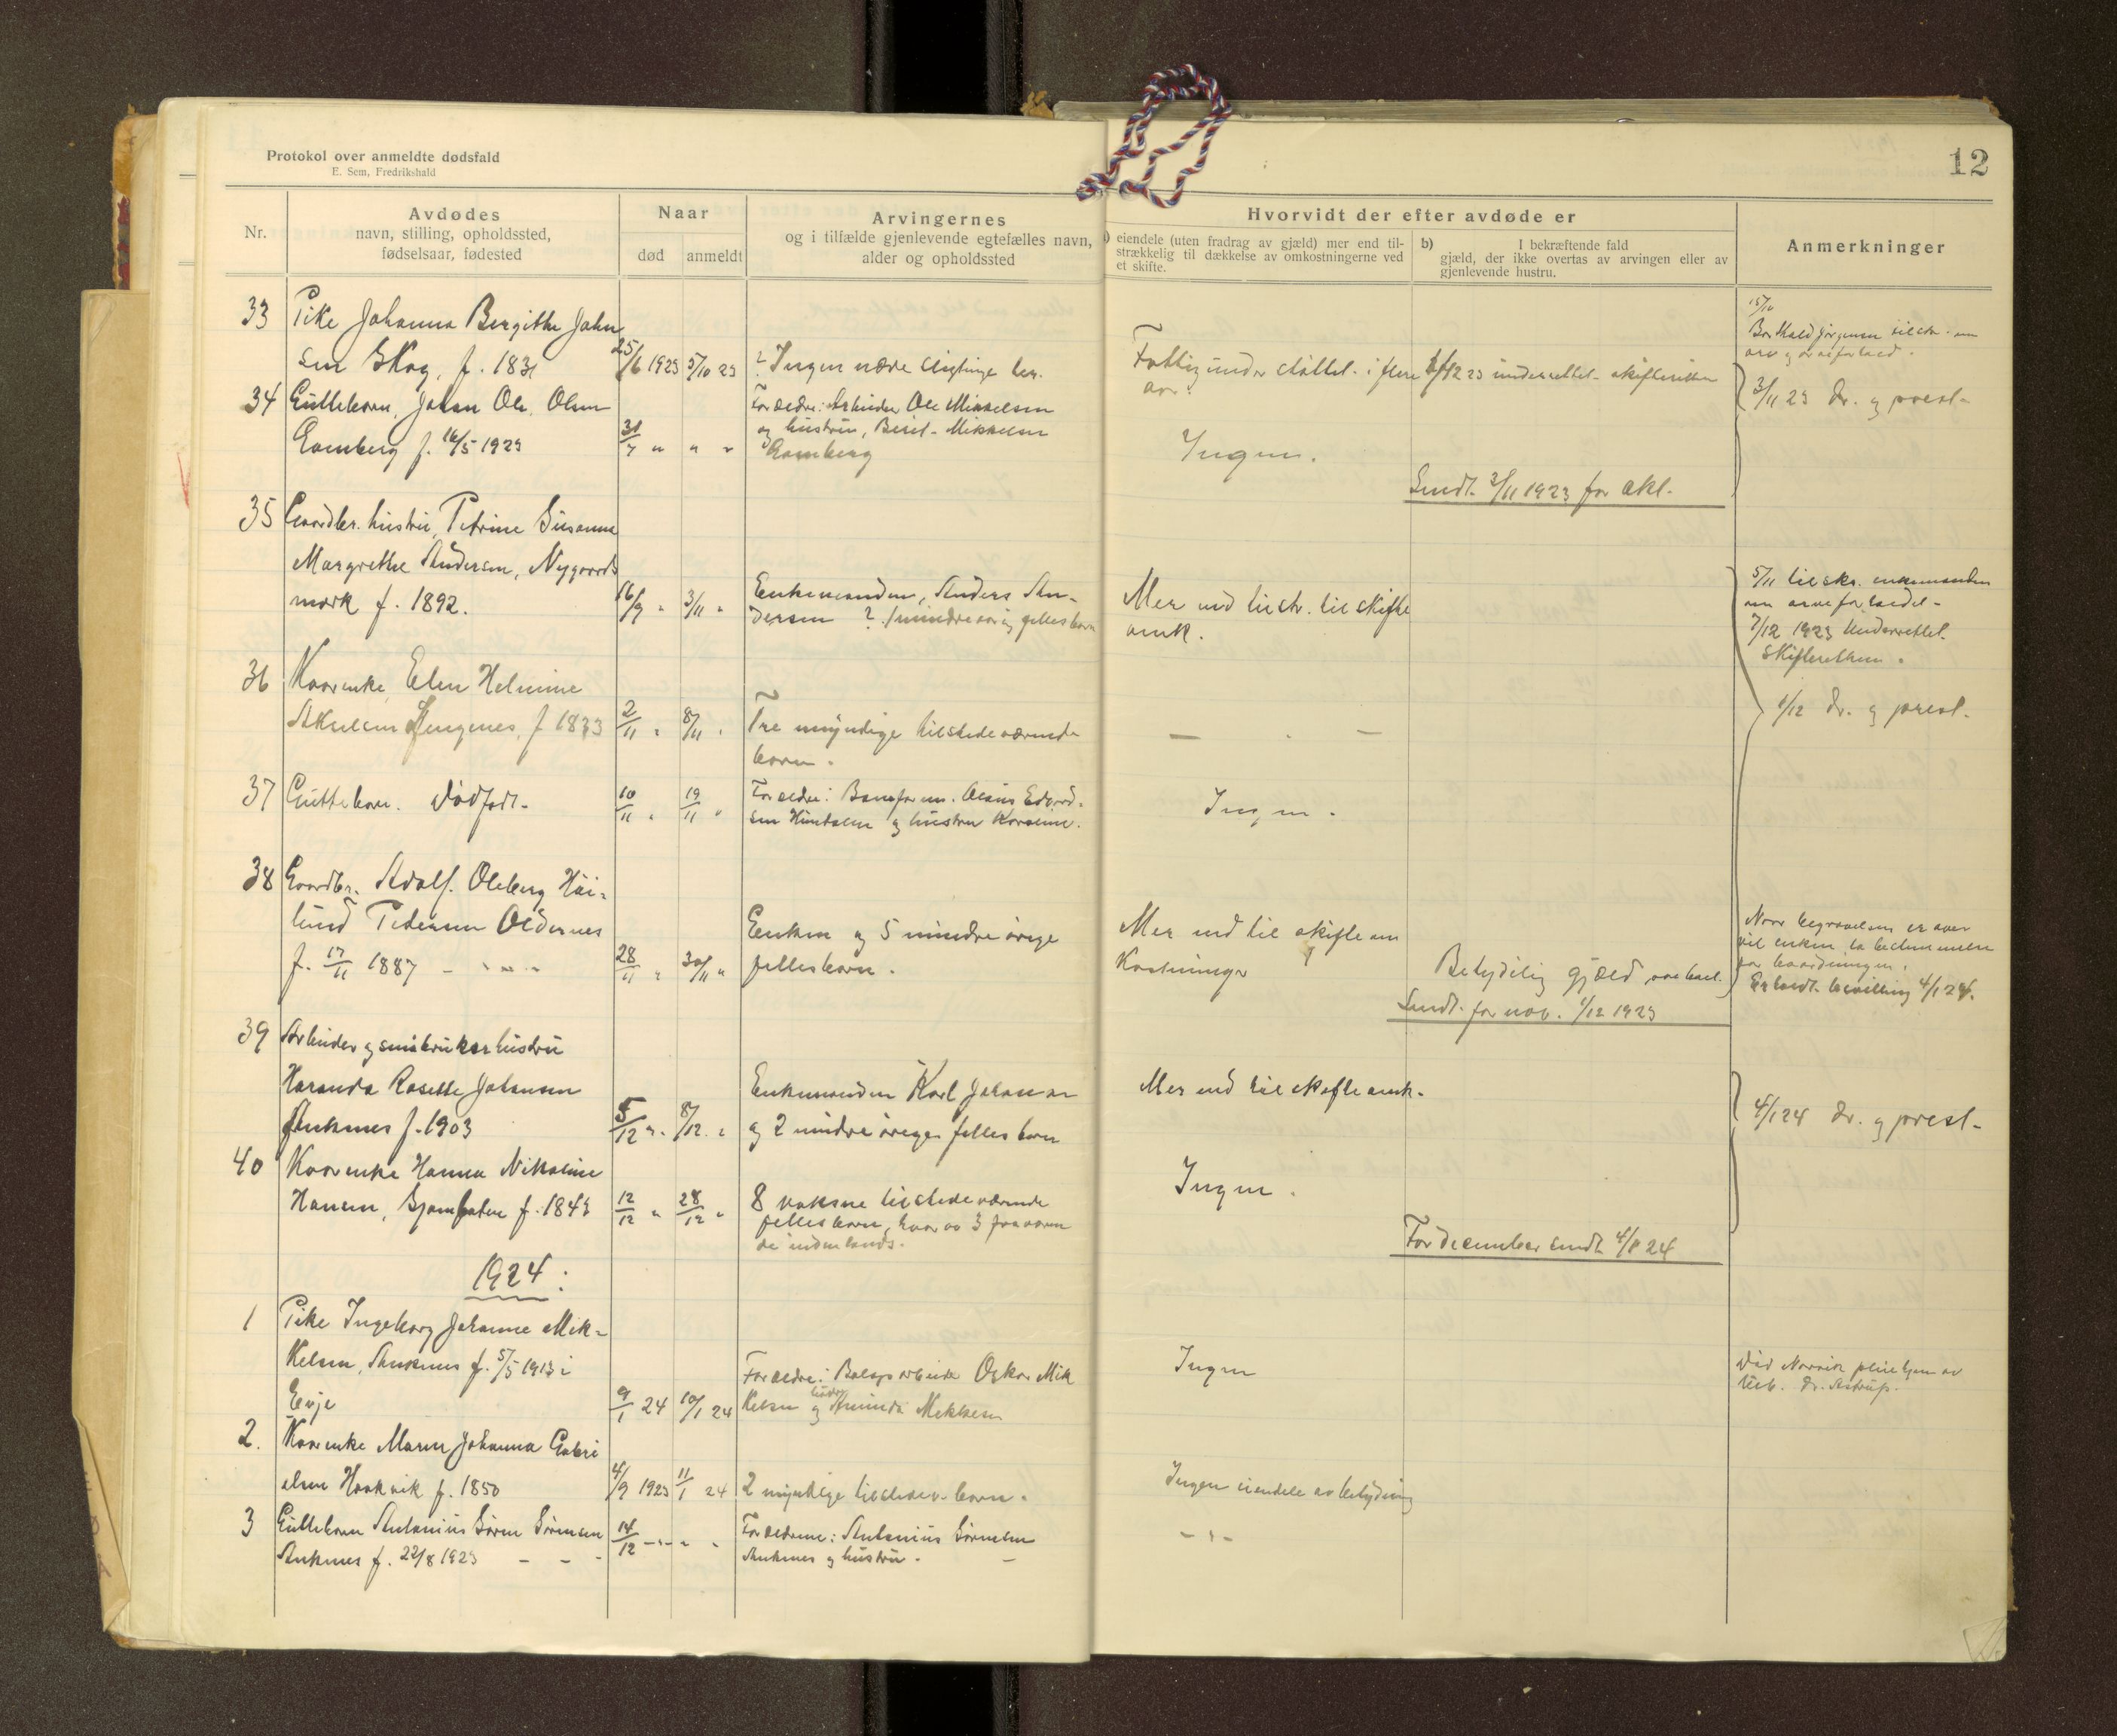 Protokol over anmeldte dødsfald
E. Sem, Fredrikshald
12
Nr.
Avdødes
navn, stilling, opholdssted,
fødselsaar, fødested
Naar
død
anmeldt
Arvingernes
og i tilfælde gjenlevende egtefælles navn,
alder og opholdssted
Hvorvidt der efter avdøde er
eiendele (uten fradrag av gjæld) mer end til-
strækkelig til dækkelse av omkostningerne ved
et skifte.
b) I bekræftende fald
gjæld, der ikke overtas av arvingen eller av
gjenlevende hustru.
Anmerkninger
33 Pike Johanna Bergitha Johan
sen Skog, f. 1831 25/6 1923 5/10 23 ? Ingen nære slegtinge lev.
Fattigunderstøttet i flere 1/12 23 underrettet skifteretten
aar.
15/10
3/11 23 dr. og prest
34 Guttebarn, Johan Ole Olsen
Gamberg f. 16/5 1923 31/7 " " "
Forældre: Arbeider Ole Mikkelsen
og hustru, Berit Mikkelsen
Gamberg
Ingen.
Sendt 3/11 1923 for okt.
35 Gaardbr. hustru, Petrine Susanna
Margrethe Andersen, Nygaards
mark f. 1892. 16/9 " 3/11 "
Enkemanden, Anders An-
dersen ? 1 mindreaarig fellesbarn
Mer end tilstr. til skifte
omk.
5/11 tilskr. enkemanden
om arveforholdet
7/12 1923 Underrettet
Skifteretten.
36 Kaarenke Elen Helmine
f 1833 2/11 " 8/11 "
Tre myndige tilstedeværende
barn.
— " —
1/12 dr. og prest.
37 Guttebarn. Dødfødt. 10/11 " 19/11 "
Forældre: Baneform. Olaus Edvard-
sen Hundalen og hustru Karoline.
Ingen.
38 Gaardbr. Adolf Oleberg Høi-
lund Pedersen Oldernes
f. 17/11 1887 28/11 " 30/11 "
Enken og 5 mindreårige
fellesbarn.
Mer end til skifteom
kostninger
Betydelig gjæld
Sendt for nov. 1/12 1923
Naar begravelsen er over
vil enken ta bestemmelse
for
Erholdt bevilling 4/1 24.
39 Arbeider og småbrukerhustru
Haranda Rosette Johansen
Ankenes f. 1903 5/12 " 8/12 "
Enkemanden Karl Johansen
og 2 mindreårige fellesbarn
Mer end til skifteomk.
4/1 24 dr. og prest
40 Kaarenke Hanna Nikoline
Hansen, f. 1843 12/12 " 28/12 "
8 voksne tilstedeværende
fellesbarn, hvorav 3 fraværen
de indenlands.
Ingen.
For december sendt 4/1 24
1924:
1 Pike Ingeborg Johanne Mik-
kelsen, Ankenes f. 5/5 1913 i
Evje 9/1 24 10/1 24
Forældre: Bolagsarbeider Oskar Mik
kelsen og hustru Aminda Mikkelsen
Ingen
Død Narvik pleiehjem av
tub. dr. Astrup.
2. Kaarenke Maren Johanna Gabri
elsen Haakvik f. 1850 4/9 1923 11/1 24 2 myndige tilstedev. barn.
Ingen eiendele av betydning
3 Guttebarn Antonius Søren Sørensen
Ankenes f. 22/8 1923 14/12 — " — " "
Forældrene: Antonius Sørensen
Ankenes og hustru.
— " —